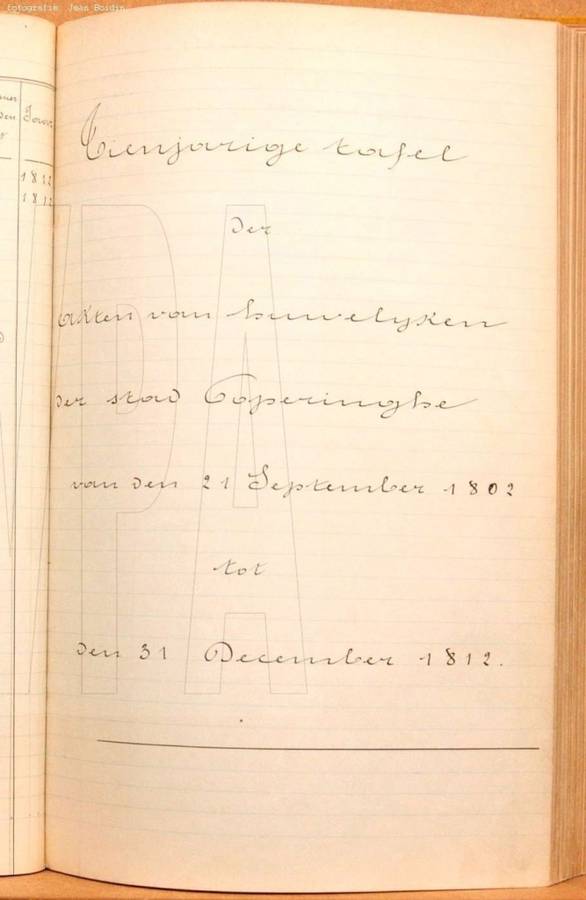 fotografie Jean Boidin
1812
1812
Tienjarige tafel
der
Akten van huwelyken
der stad Poperinghe
van den 21 September 1802
tot
den 31 December 1812.